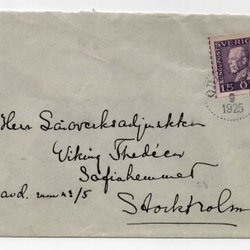 SVERIGE
15 Ö
9
1925
Herr Läroverksadjunkten
Viking Thedéen
Sofiahemmet
avd. rum 42/5
Stockholm